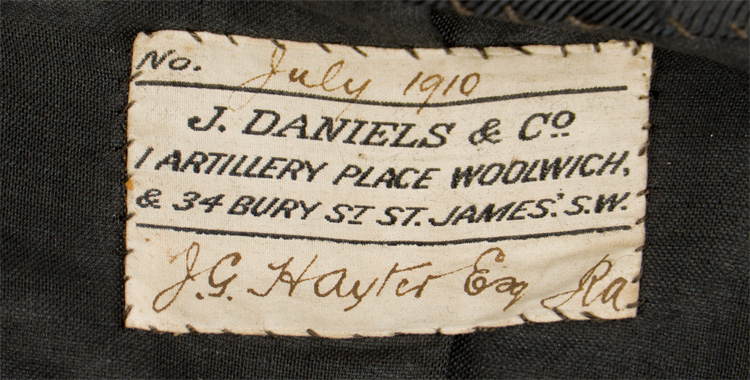 No. July 1910
J. DANIELS & Co
1 ARTILLERY PLACE WOOLWICH,
& 34 BURY ST ST. JAMES'. S.W.
J.G. Hayter Esq Ra